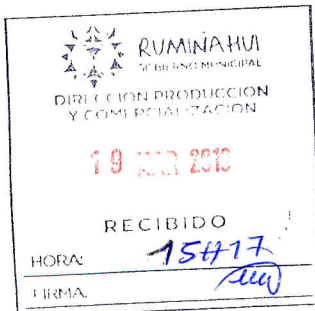 RUMIÑAHUI
GOBIERNO MUNICIPAL
DIRECCION PRODUCCION
Y COMERCIALIZACION
19 2019
RECIBIDO
HORA: 15H17
FIRMA: